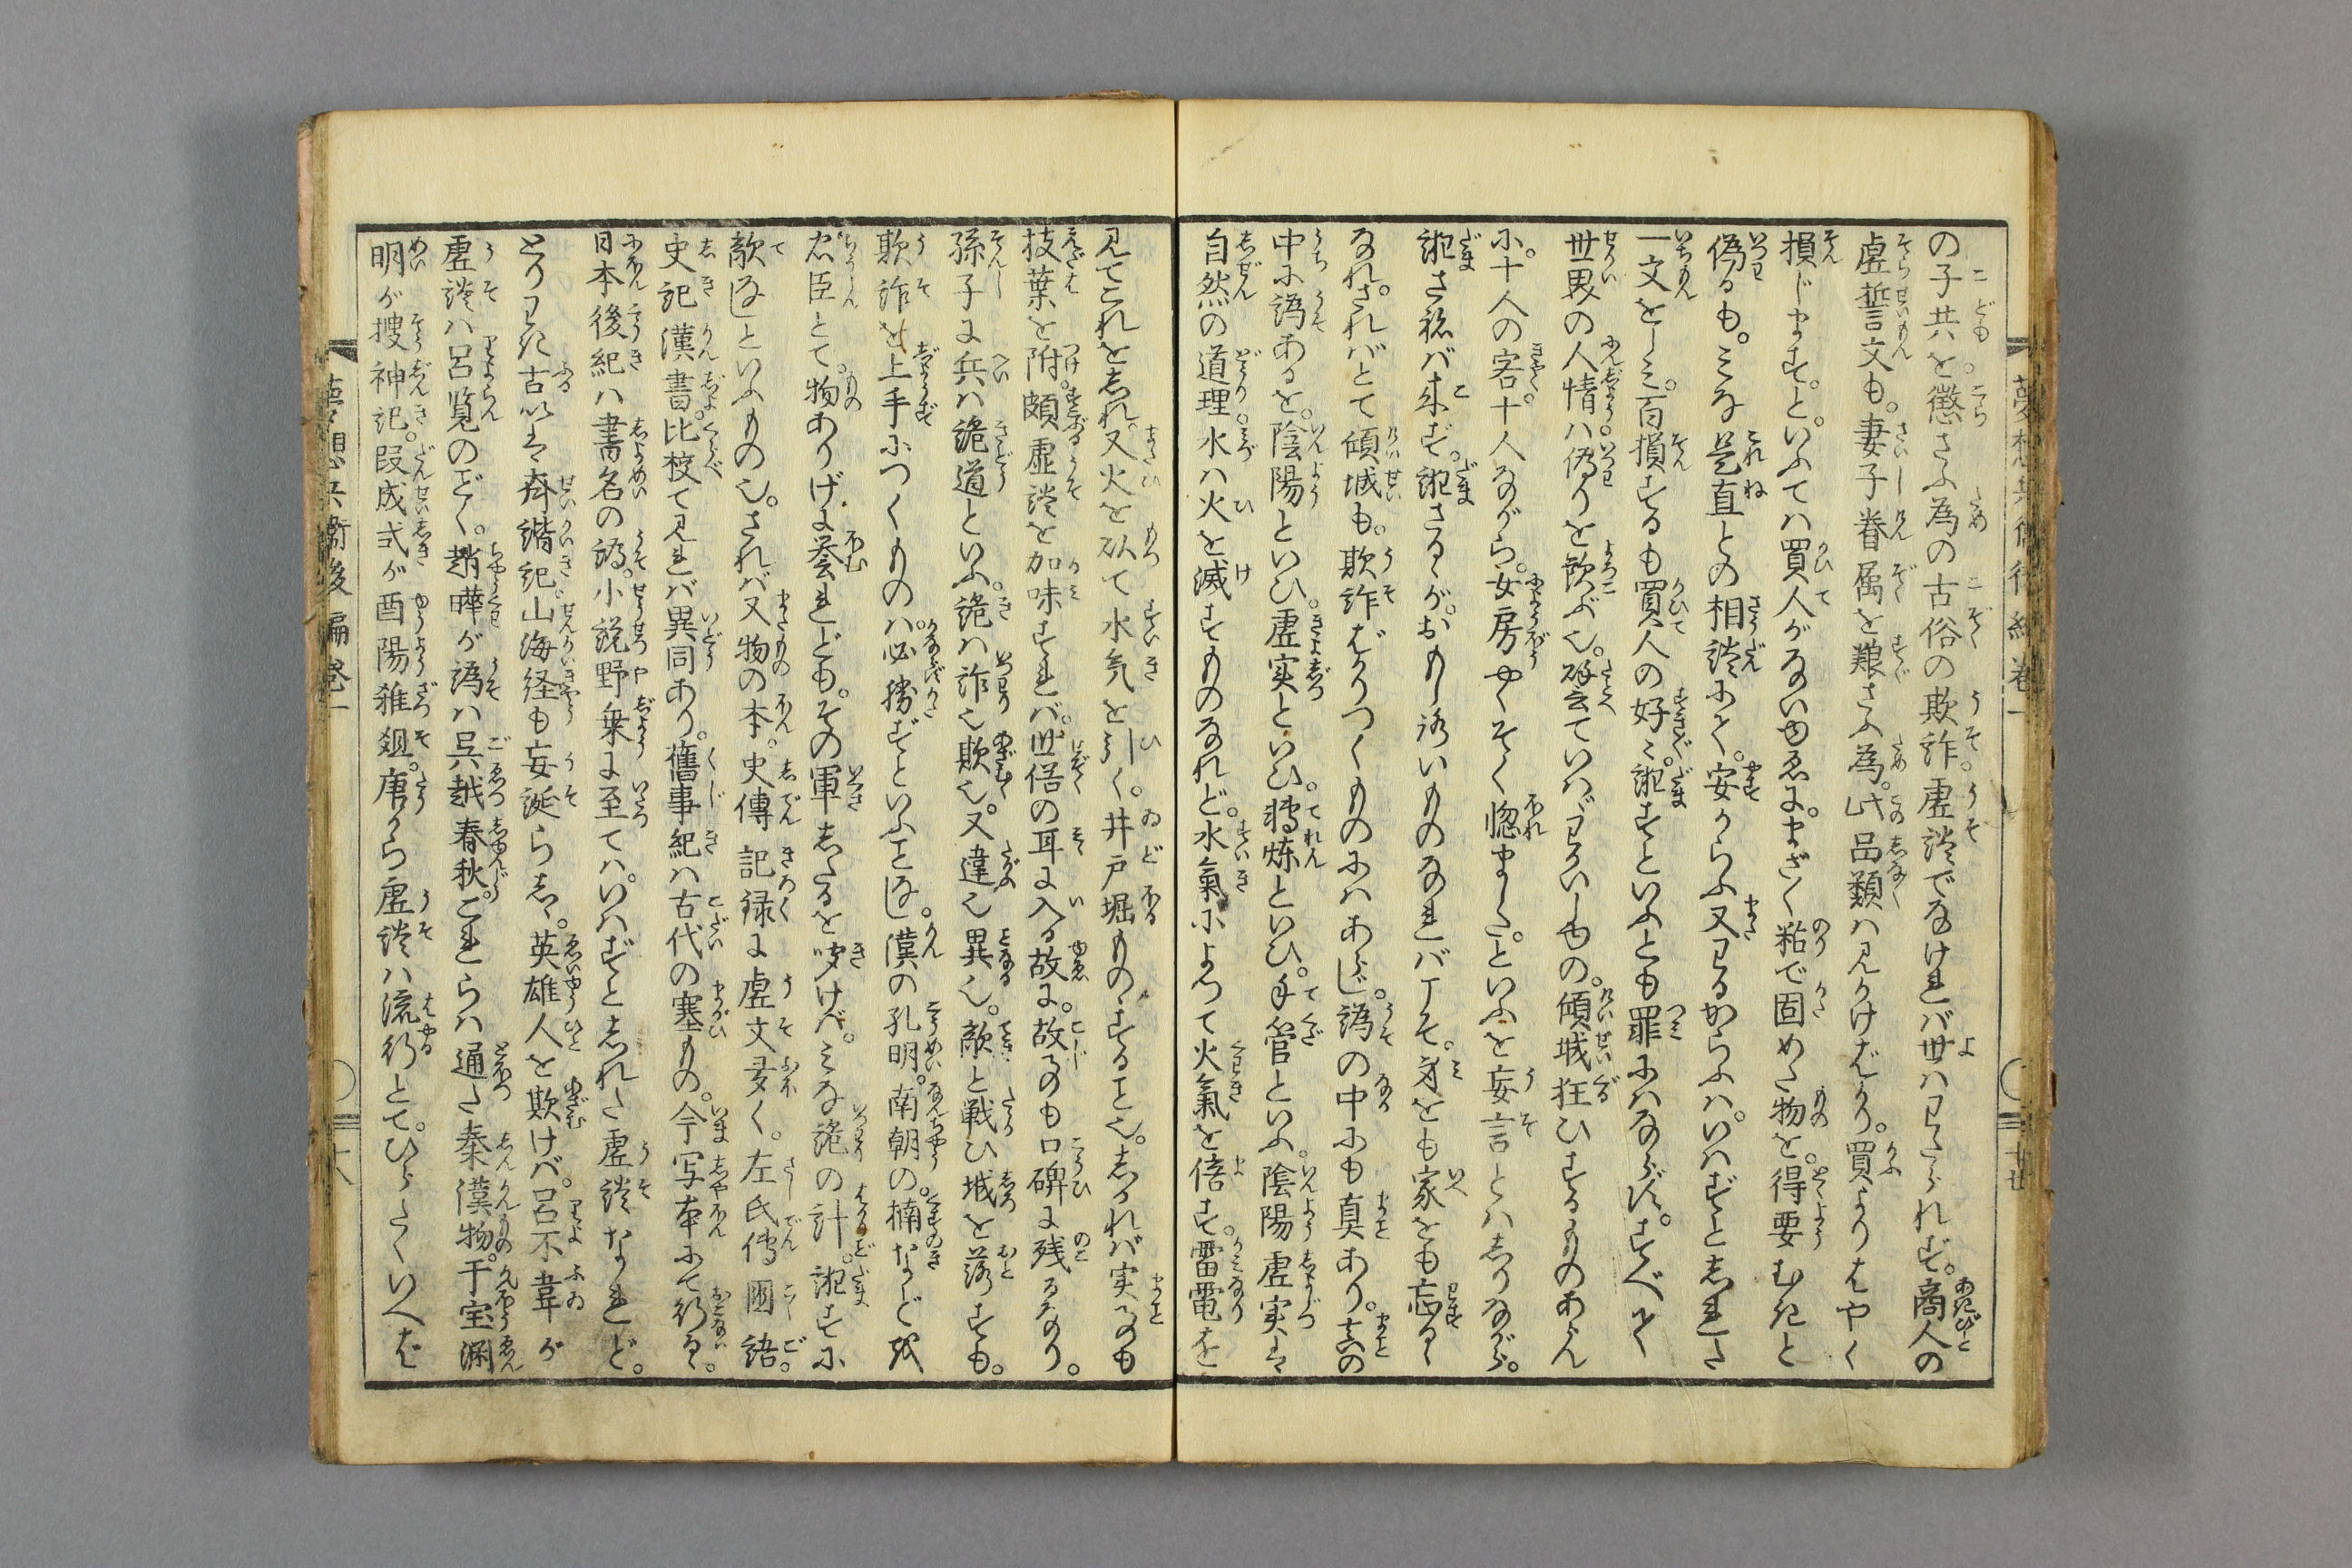 の子共を。懲さふ為の古俗の欺詐。虚談でなけれバ世ハわたられず。商人の
虚誓文も。妻子眷属を粮さふ為。此品類ハ見かけばかり。買よりはやく
損じます。と。いふてハ買人がないゆゑに。まざ〳〵粘で固めた物を。得要むきと
偽るも。みな是直との相談づく。安からふ又わるからふハ。いはずとしれた
一文をしみ。百損するも買人の好〴〵。誑すといふとも罪にハならず。すべて
世界の人情ハ。偽りを歓ぶ也。譬ていはゞわかいもの。傾城狂ひするものあらん
に。十人の客。十人ながら。女房めくそく惚ました。といふを妄言とハしりながら。
誑さ祢バ来ず。誑さるゝが。おもしろいものなれバこそ。身をも家をも忘るゝ
なれ。されバとて傾城も。欺詐ばかりつくものにハあらじ。譌の中にも真あり。真の
中に譌あるを。陰陽といひ。虚実といひ。轉煉といひ。手管といふ。陰陽虚実は
自然の道理。水ハ火を滅すものなれど。水氣によつて火氣を倍す。雷電を
見てこれをしれ。又火を以て水気を引く。井戸堀ものすること也。しかれバ実事も
枝葉を附。頗虚談を加味すれバ。世俗の耳に入る故に。故事も口碑に残るなり。
孫子に兵ハ詭道といふ。詭ハ詐也欺也。又違也異也。敵と戦ひ城を落すも。
欺詐を上手につくものハ。必勝ずといふことなし。漢の孔明。南朝の。楠などが
忠臣とて。物ありげに誉れども。その軍したるを聞けバ。みな詭の計。誑すに
敵なしといふもの也。されバ又物の本。史傳記録に虚文多く。左氏傳國語。
史記漢書。比校て見れバ異同あり。舊事紀ハ古代の塞もの。今写本にて行るゝ。
日本後紀ハ書名の譌。小説野乗に至てハ。いはずとしれた虚談なれど。
とりわき古いは齊諧紀。山海経も妄誕らし。英雄人を欺けバ。呂不韋が
虚談ハ呂覧のごく。趙曄が譌ハ呉越春秋。これらハ通た秦漢物。干宝淵
明が捜神記。段成式が酉陽雑俎。唐から虚談ハ流行とて。ひらたくいへば
夢想兵衛後編巻一